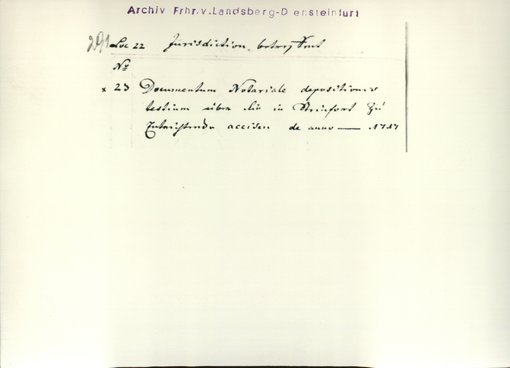 Archiv Frhr.v.Landsberg-Drensteinfurt
Loc 22 Jurisdiction
No
x 23 Documentum Notariale depositionis
testium über die in Steinfort zu
Entrichtende accisen de anno — 1717